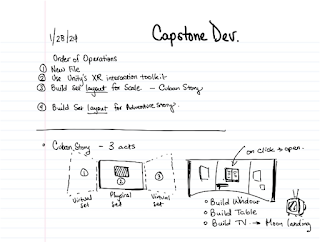 1/28/24
Capstone Dev.
Order of Operations
① New File
② Use Unity's XR interaction toolkit
③ Build Set layout for Scale - Cuban Story
④ Build Set layout for Adventure Story.
Cuban Story - 3 acts
on click to open.
① ② ③
Virtual Set
Physical Set
Virtual Set
Build Window
Build Table
Build TV → Moon landing